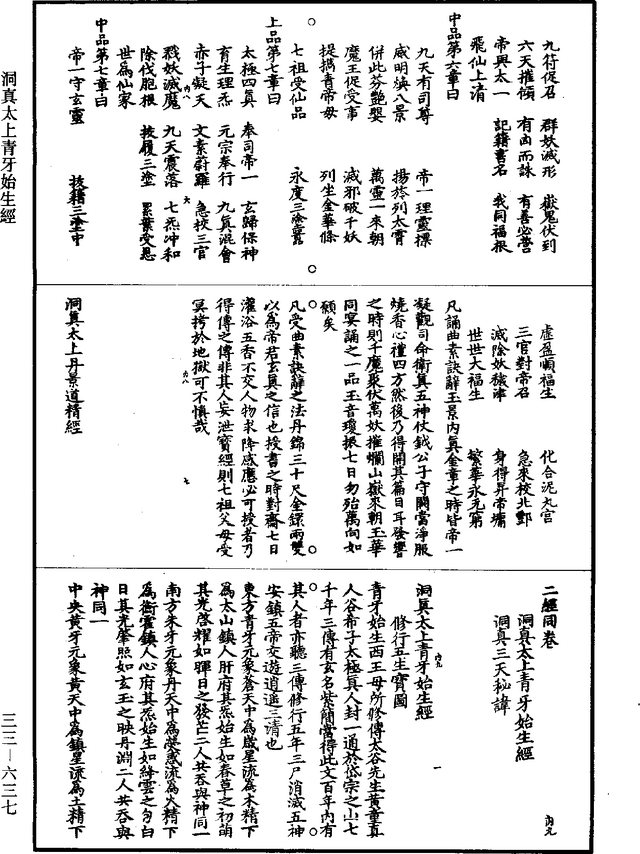 九符促召　群妖滅形　嶽鬼伏到
六天摧傾　有凶而誅　有善必營
帝興太一　記籍書名　我同福根
飛仙上清
中品第六章曰
九天有司尊　帝一理靈標
威明煥八景　揚旍列太霄
併此芬艷嬰　萬靈一來朝
魔王促受事　滅邪破千妖
提攜青帝母　列坐金華條
七祖受仙品　永度三塗
上品第七章曰
太極四真　奉司帝一　玄歸保神
育生理炁　元宗奉行　九真混會
赤子凝天　文素蔚羅　急校三官
戮妖滅魔　九天震落　七炁沖和
除伐胞根　拔履三塗　累葉受恩
世為仙家
中品第七章曰
帝一守玄靈　拔籍三塗中
虛盈順福生　化合泥丸宮
三官對帝召　急來校北酆
滅除妖穢津　身得昇帝墉
世世大福生　繁華永無窮
凡誦曲素訣辭玉景內真金章之時皆帝一
凝觀司命衛真五神仗鉞公子守關當淨服
燒香心禮四方然後乃得開其篇目耳發響
之時則千魔聚伏萬妖摧爛山嶽來朝玉華
同宴誦之一品玉音瓊振七日勿殆萬向如
願矣
凡受曲素訣辭之法丹錦三十尺金鐶兩雙
以為帝君玄真之信也授書之時對齋七日
灌浴五香不交人物求降感應必可授者乃
得傳之傳非其人妄泄寶經則七祖父母受
冥拷於地獄可不慎哉
洞真太上丹景道精經
二經同卷
洞真太上青牙始生經
洞真三天秘諱
洞真太上青牙始生經
修行五生寶圖
青牙始生西王母所修傳太谷先生黃童真
人谷希子太極真人封一通於岱宗之山七
千年三傳有玄名紫簡當得此文百年內有
其人者亦聽三傳修行五年三尸消滅五神
安鎮五帝交遊逍遥三清也
東方青牙元象蒼天中為歲星流為木精下
為太山鎮人肝府其炁始生如春草之初萌
其光啓耀如暉日之發芒二人共吞與神同一
南方朱牙元象丹天中為熒惑流為火精下
為衡霍鎮人心府其炁始生如絳雲之勻白
日其光肇照如玄玉之映丹淵二人共吞與
神同一
中央黃牙元象黃天中為鎮星流為土精下
洞真太上青牙始生經
三三—六三七